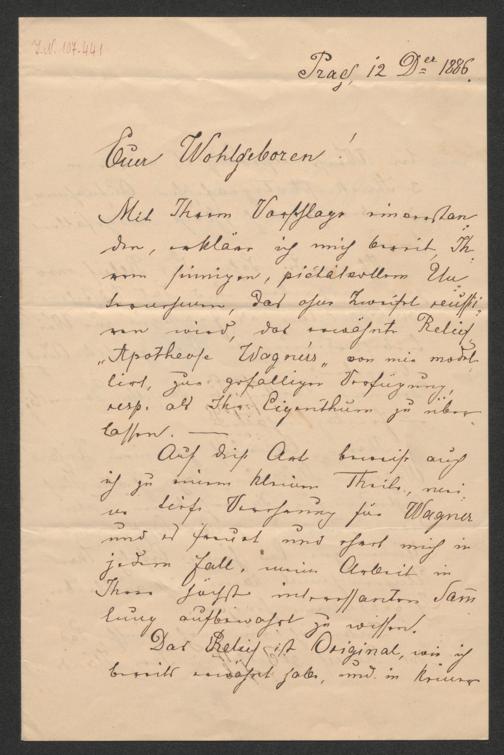 I.N. 107.441
Prag, 12 Der 1886.
Euer Wohlgeboren!
Mit Ihrem Vorschlage einverstan
den, erkläre ich mich bereit, Ih
rem sinnigen, pietätvollem Un
ternehmen, das ohne Zweifel reussi
ren wird, das erwähnte Relief
„Apotheose Wagners" von mir model
lirt, zur gefälligen Verfügung,
resp. als Ihr Eigenthum zu über
lassen. —
Auf diese Art beweise auch
ich zu einem kleinen Theile, mei
ne tiefe Verehrung für Wagner
und es freuet und ehret mich in
jedem Fall, meine Arbeit in
Ihrer höchst interessanten Sam̅
lung aufbewahrt zu wissen.
Das Relief ist Original, wie ich
bereits erwähnt habe, und in keiner